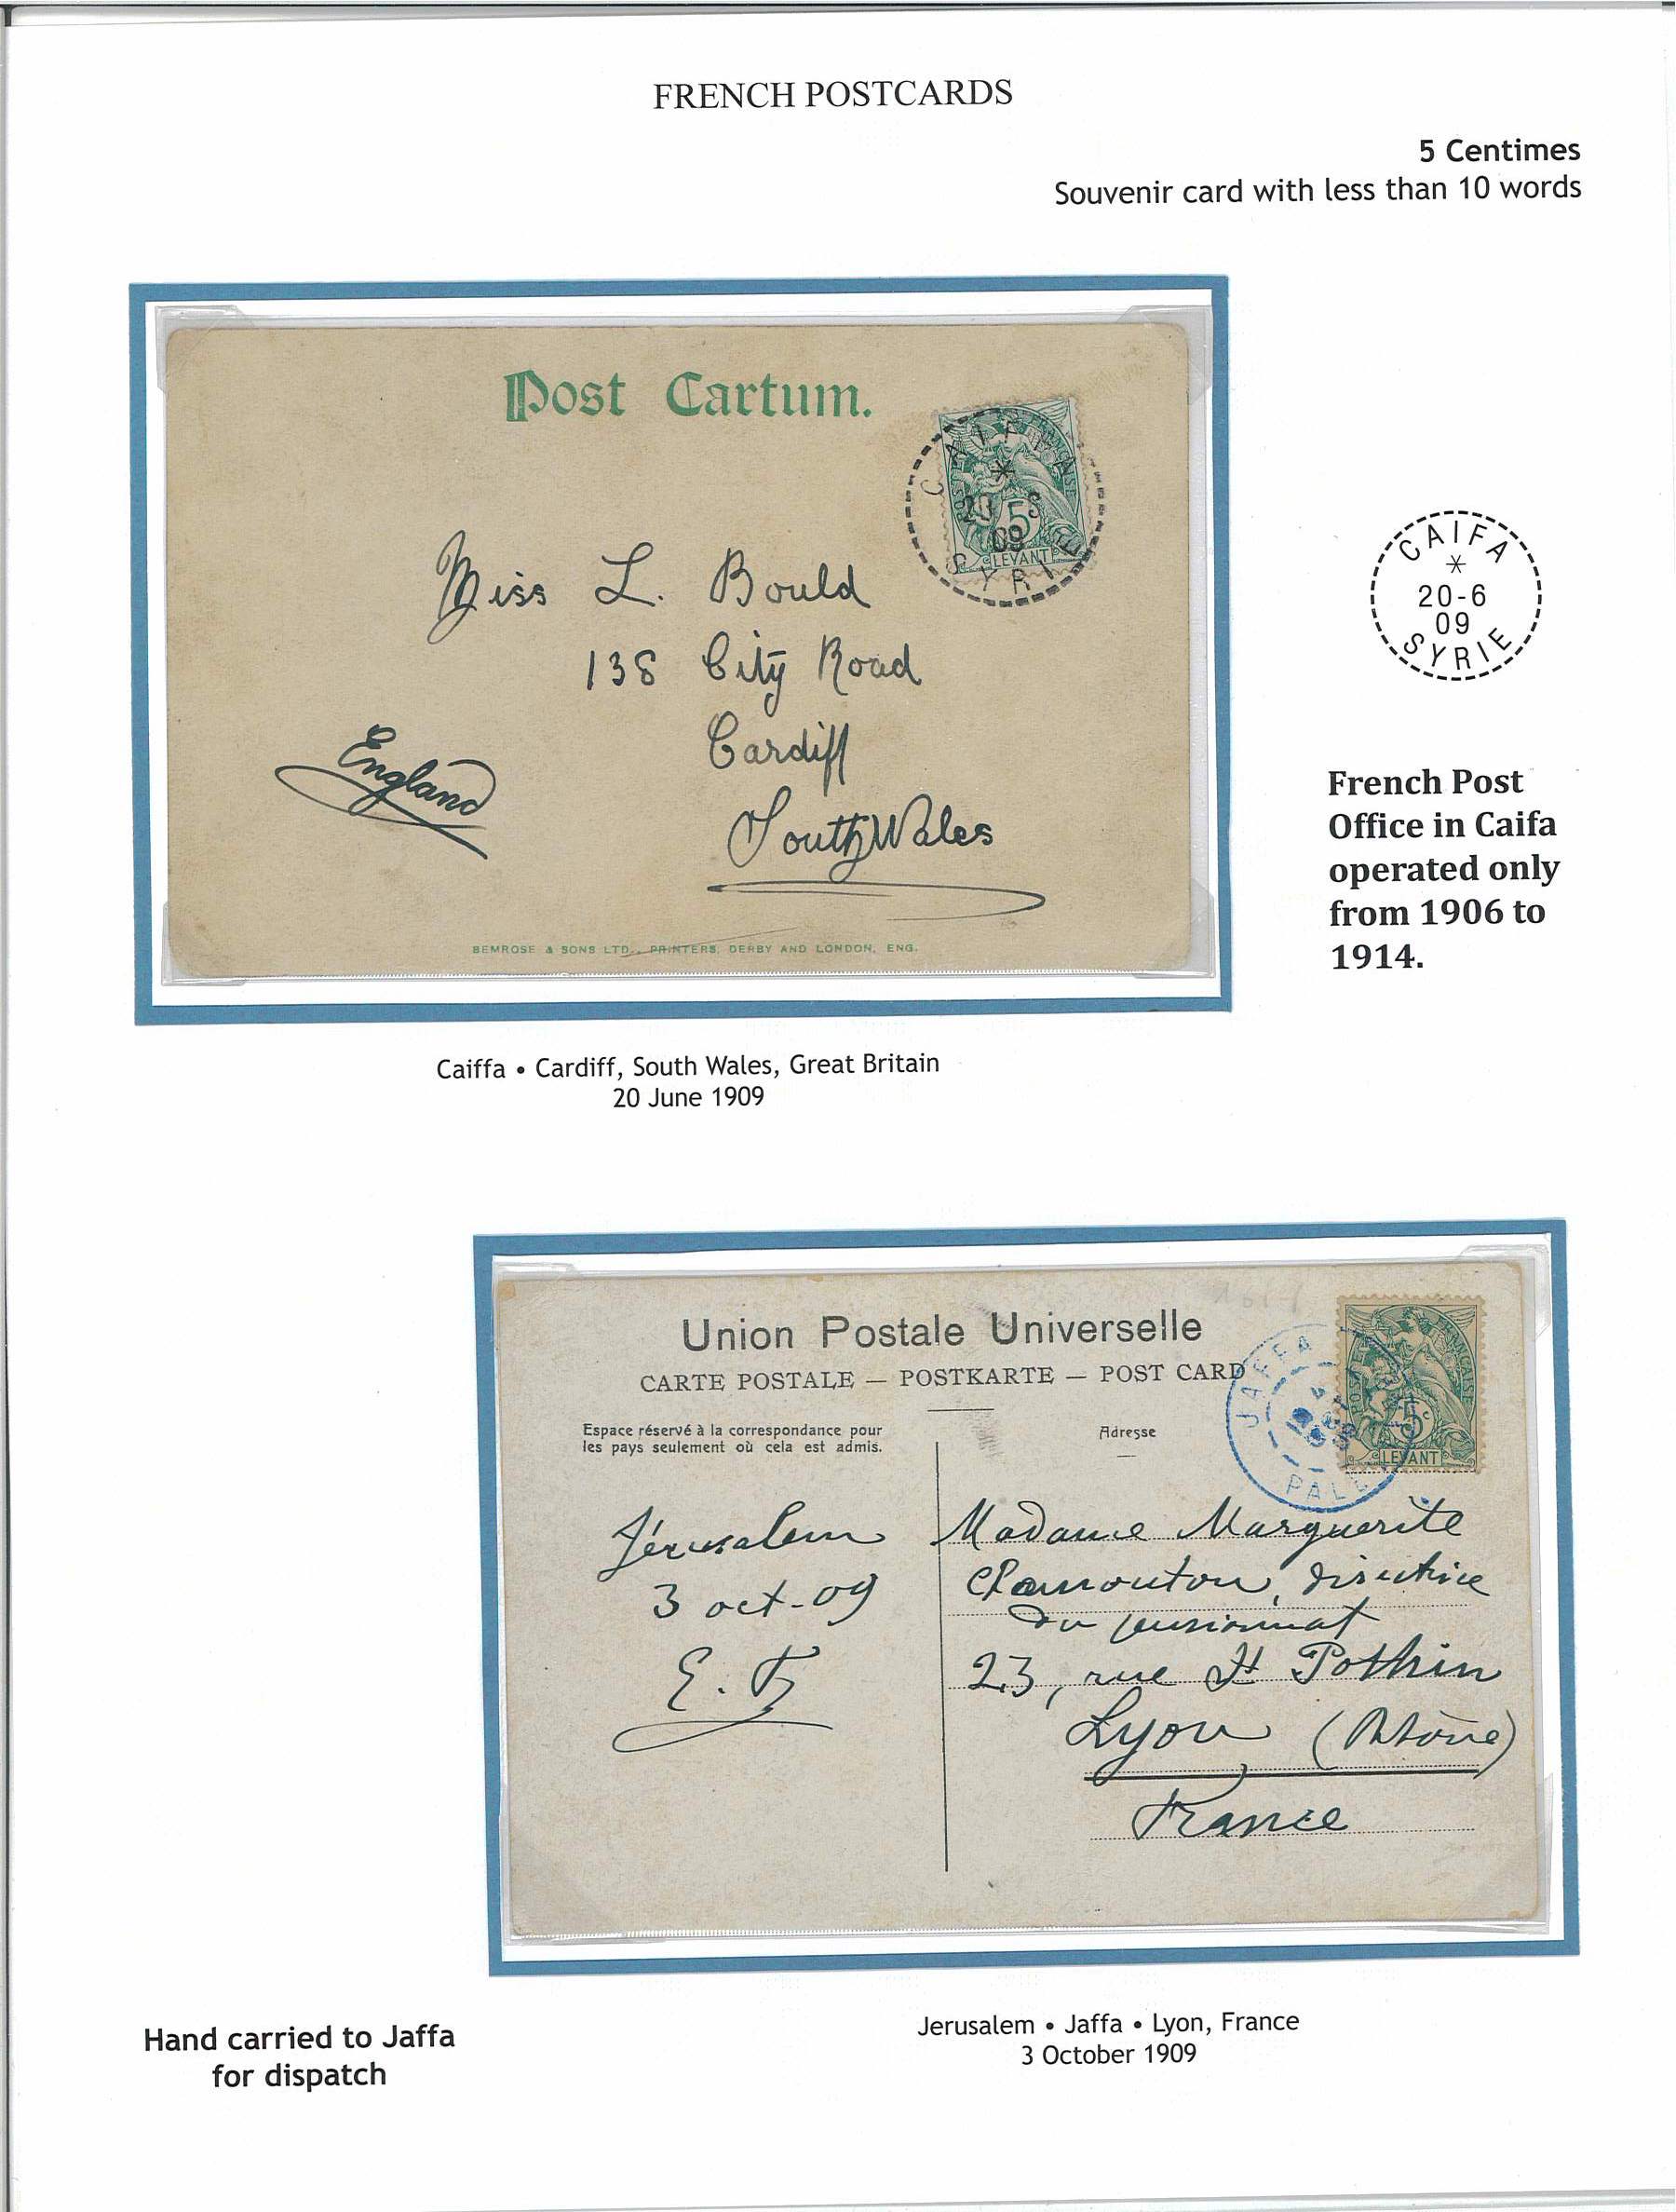 FRENCH POSTCARDS
5 Centimes
Souvenir card with less than 10 words
Post Cartum.
CAIFFA
*
09
SYRIE
5
LEVANT
Miss L. Bould
138 City Road
Cardiff
South Wales
England
BEMROSE & SONS LTD., PRINTERS, DERBY AND LONDON, ENG.
CAIFA
*
20-6
09
SYRIE
French Post
Office in Caifa
operated only
from 1906 to
1914.
Caiffa • Cardiff, South Wales, Great Britain
20 June 1909
Union Postale Universelle
CARTE POSTALE — POSTKARTE — POST CARD
Espace réservé à la correspondance pour
les pays seulement où cela est admis.
Adresse
JAFFA
PALE
5c
LEVANT
Jérusalem
3 oct-09
E. B
Madame Marguerite
Chamouton, directrice
du pensionnat
23, rue St Pothin
Lyon (Rhône)
France
Hand carried to Jaffa
for dispatch
Jerusalem • Jaffa • Lyon, France
3 October 1909